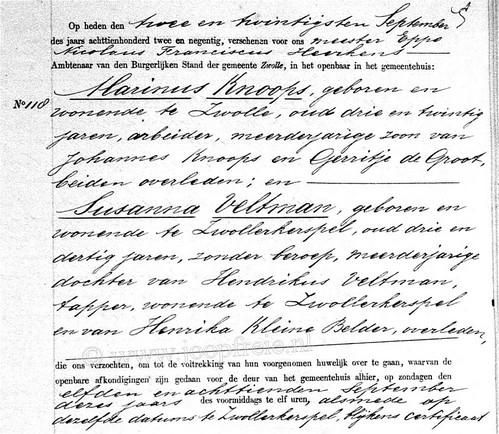 Op heden den twee en twintigsten September
des jaars achttienhonderd twee en negentig, verschenen voor ons meester Eppo
Nicolaus Franciscus Heerkens
Ambtenaar van den Burgerlijken Stand der gemeente Zwolle, in het openbaar in het gemeentehuis:
No. 118
Marinus Knoops, geboren en
wonende te Zwolle, oud drie en twintig
jaren, arbeider, meerderjarige zoon van
Johannes Knoops en Gerritje de Groot,
beiden overleden; en
Susanna Veltman, geboren en
wonende te Zwollerkerspel, oud drie en
dertig jaren, zonder beroep, meerderjarige
dochter van Hendrikus Veltman,
tapper, wonende te Zwollerkerspel
en van Henrika Kleine Belder, overleden,
die ons verzochten, om tot de voltrekking van hun voorgenomen huwelijk over te gaan, waarvan de
openbare afkondigingen zijn gedaan voor de deur van het gemeentehuis alhier, op zondagen den
elfden en achttienden September
dezes jaars des voormiddags te elf uren, alsmede op
dezelfde datums te Zwollerkerspel, blijkens certificaat